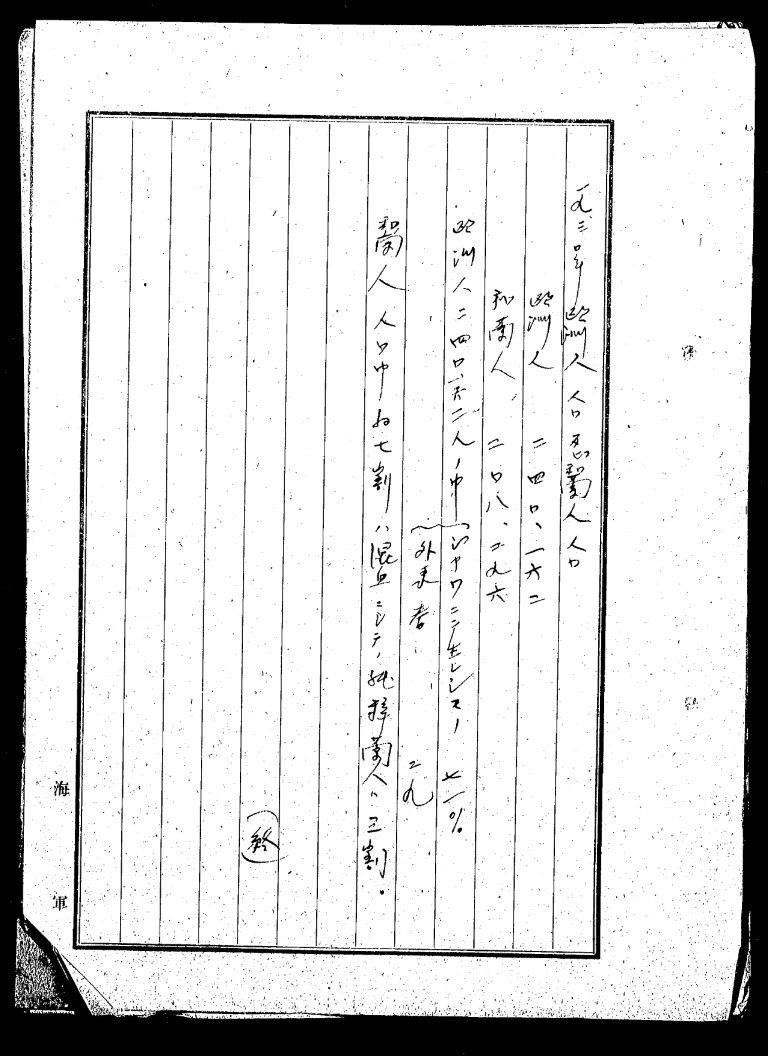 一九三〇年欧洲人人口及和蘭人人口
欧洲人 二四〇、一六二
和蘭人 二〇八、二九六
欧洲人二四〇、一六二人ノ中 ジヤワニ生レシモノ 七一%
外来者 二九
蘭人人口中約七割ハ混血ニシテ、純粋蘭人ハ三割。
(終)
海軍